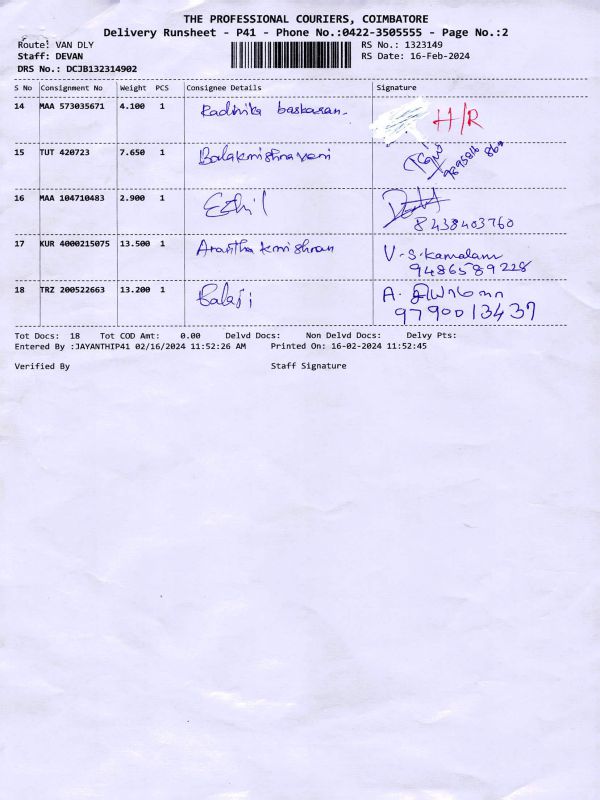 THE PROFESSIONAL COURIERS, COIMBATORE
Delivery Runsheet - P41 - Phone No.:0422-3505555 - Page No.:2
Route: VAN DLY
RS No.: 1323149
Staff: DEVAN
RS Date: 16-Feb-2024
DRS No.: DCJB132314902
S No Consignment No Weight PCS Consignee Details Signature
14 MAA 573035671 4.100 1 Radhika baskaran. H/R
15 TUT 420723 7.650 1 Balakrishnaveni
16 MAA 104710483 2.900 1
8438403760
17 KUR 4000215075 13.500 1 Anantha krishnan V.S.Kamalam
9486589228
18 TRZ 200522663 13.200 1 Balaji A.
9790013437
Tot Docs: 18 Tot COD Amt: 0.00 Delvd Docs: Non Delvd Docs: Delvy Pts:
Entered By :JAYANTHIP41 02/16/2024 11:52:26 AM Printed On: 16-02-2024 11:52:45
Verified By Staff Signature